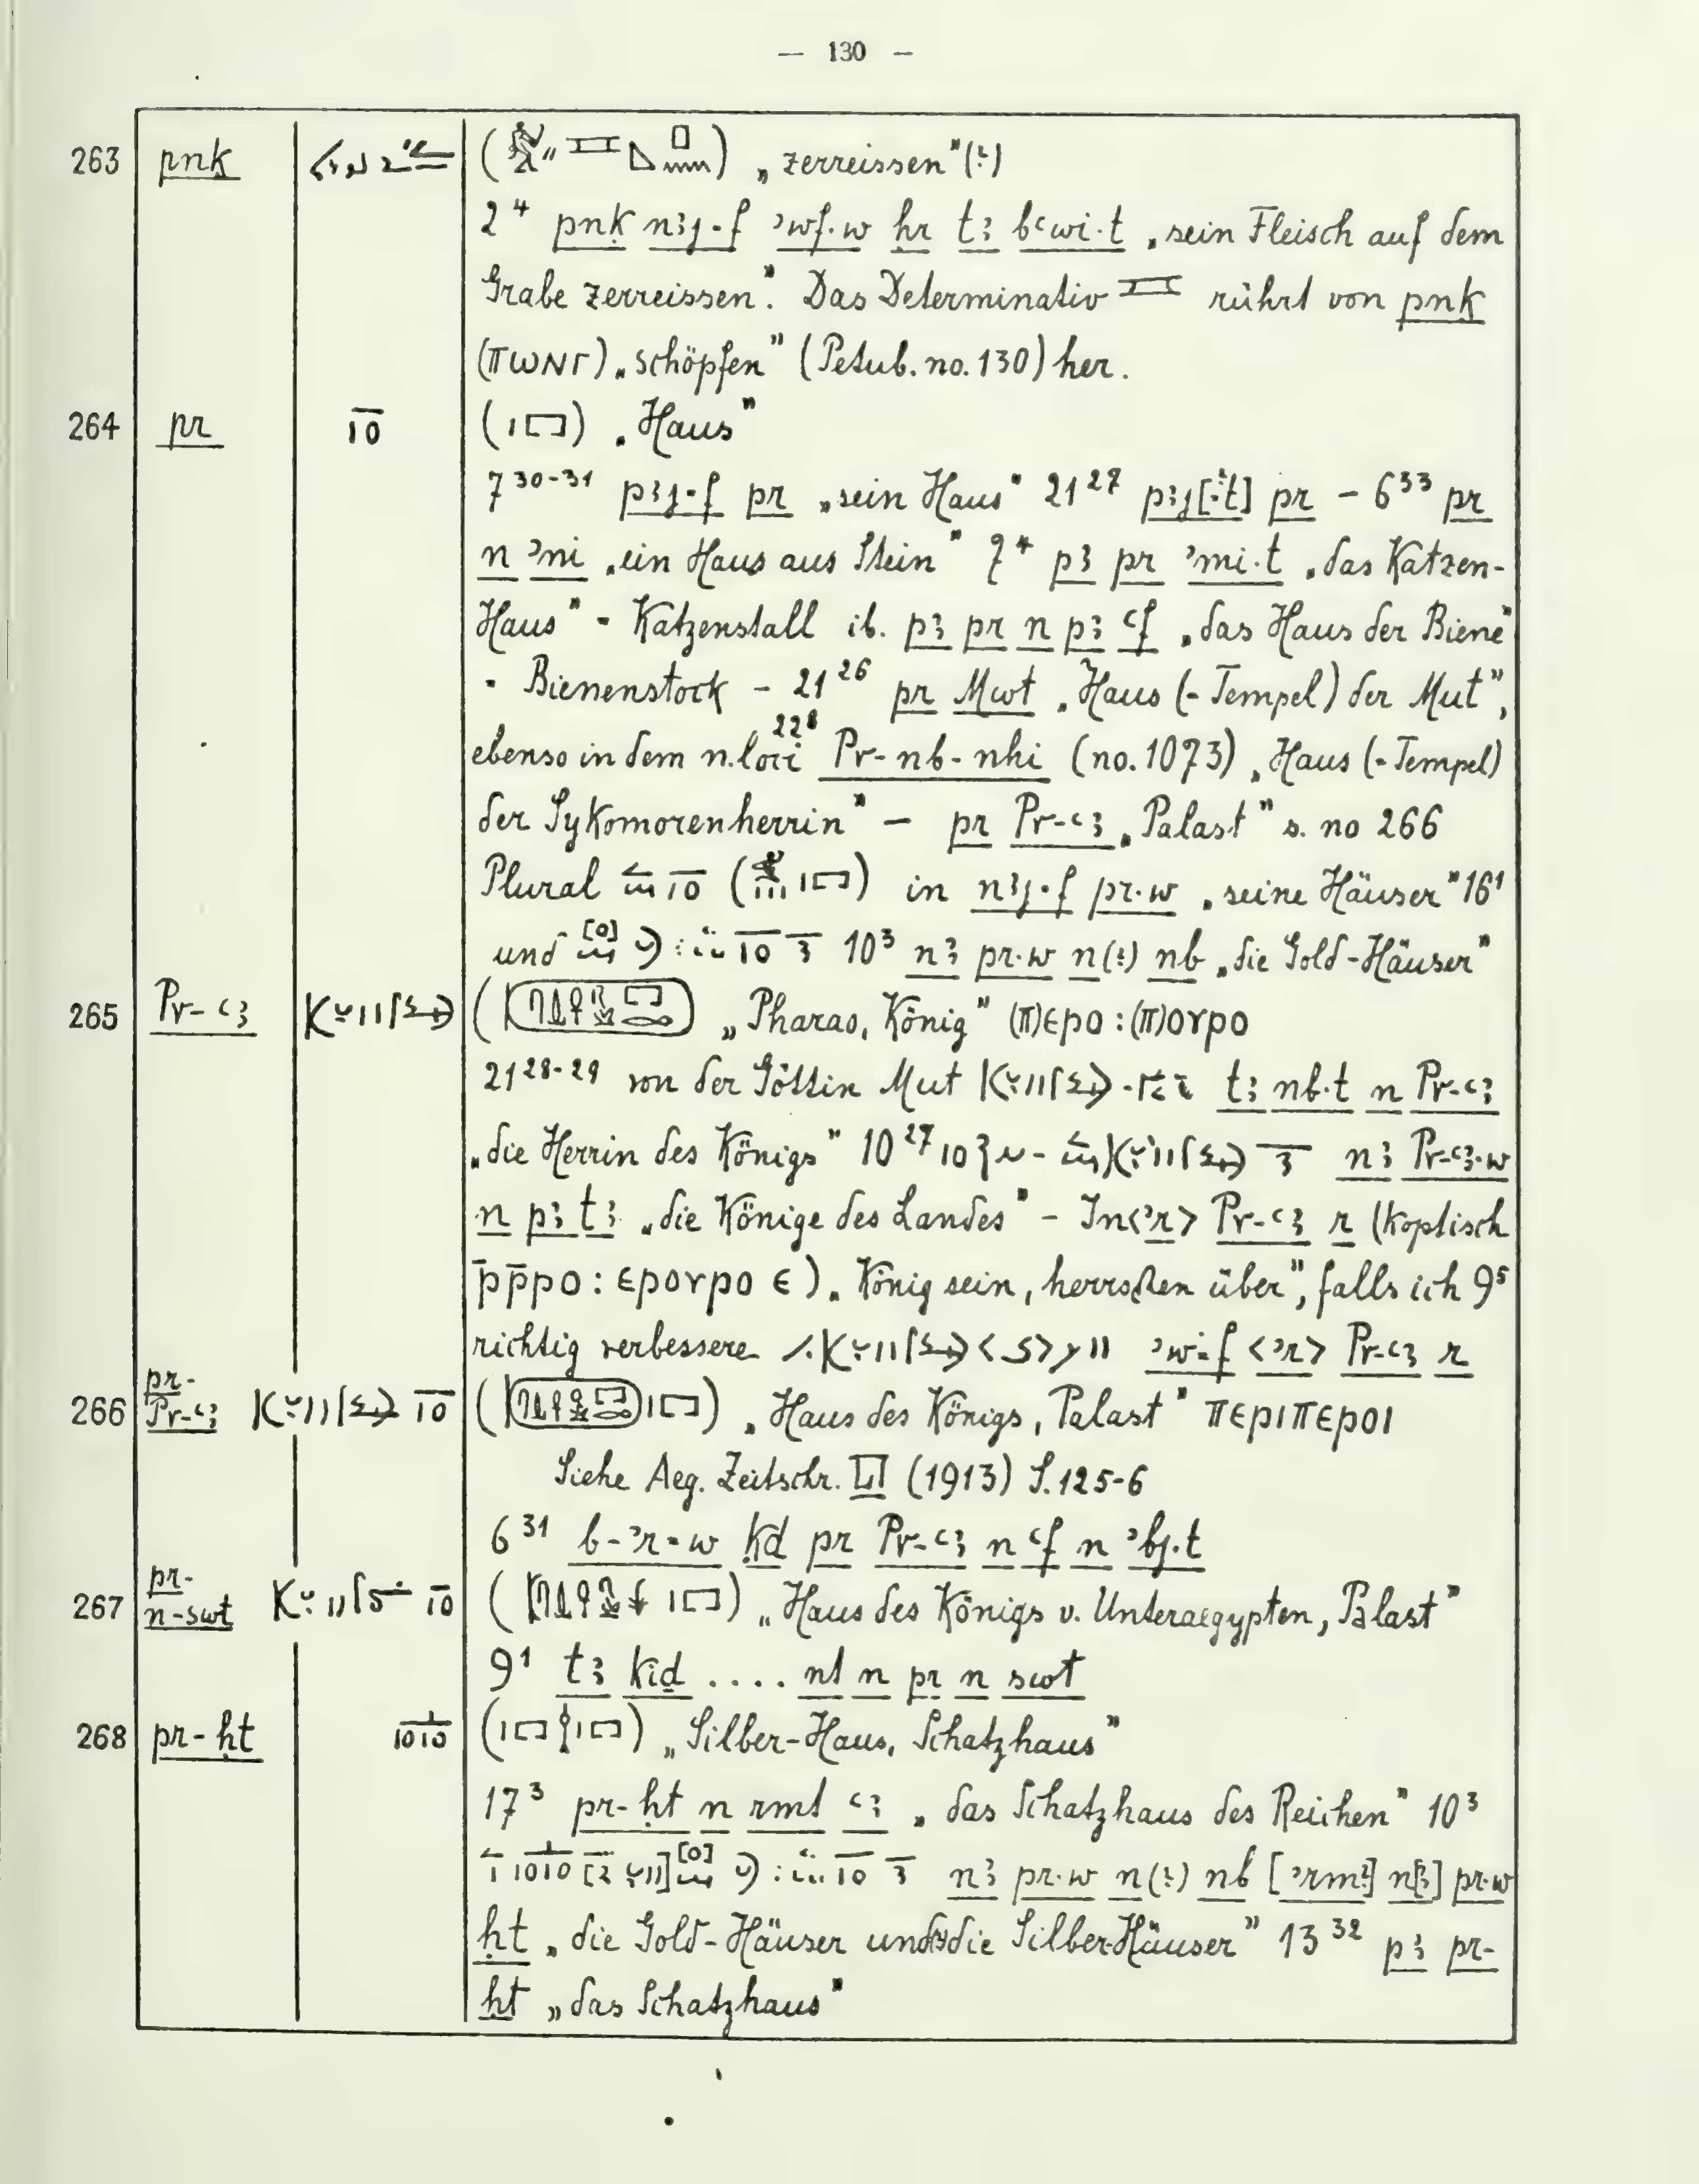 — 130 —
263 pnḳ „zerreissen"(?)
2⁴ pnḳ nꜣj·f ꜥwf.w ḥr tꜣ bꜥwi·t „sein Fleisch auf dem
Grabe zerreissen". Das Determinativ rührt von pnḳ
(ⲡⲱⲛⲅ) „schöpfen" (Petub. no. 130) her.
264 pr „Haus"
7³⁰⁻³¹ pꜣj·f pr „sein Haus" 21²⁷ pꜣj[·t] pr – 6³³ pr
n ʾni „ein Haus aus Stein" 7⁴ pꜣ pr ʾmi·t „das Katzen-
Haus" = Katzenstall ib. pꜣ pr n pꜣ ꜥf „das Haus der Biene"
= Bienenstock – 21²⁶ pr Mwt „Haus (= Tempel) der Mut",
ebenso in dem n. loci 22⁸ Pr-nb-nhi (no. 1073) „Haus (= Tempel)
der Sykomorenherrin" – pr Pr-ꜥꜣ „Palast" s. no 266
Plural in nꜣj·f pr·w „seine Häuser" 16¹
und 10³ nꜣ pr·w n(?) nb „die Gold-Häuser"
265 Pr-ꜥꜣ „Pharao, König" (ⲡ)ⲉⲣⲟ : (ⲡ)ⲟⲩⲣⲟ
21²⁸⁻²⁹ von der Göttin Mut tꜣ nb·t n Pr-ꜥꜣ
„die Herrin des Königs" 10²⁷ nꜣ Pr-ꜥꜣ·w
n pꜣ tꜣ „die Könige des Landes" – In <ʾr> Pr-ꜥꜣ r (koptisch
ⲣ̄ⲣ̄ⲣⲟ : ⲉⲣⲟⲩⲣⲟ ⲉ) „König sein, herrschen über", falls ich 9⁵
richtig verbessere ʾw=f <ʾr> Pr-ꜥꜣ r
266 pr-Pr-ꜥꜣ „Haus des Königs, Palast" ⲡⲉⲣⲓⲡⲉⲣⲟⲓ
Siehe Aeg. Zeitschr. LI (1913) S. 125-6
6³¹ b-ʾr=w ḳd pr Pr-ꜥꜣ n ꜥf n ʾbj·t
267 pr-n-swt „Haus des Königs v. Unteraegypten, Palast"
9¹ tꜣ ḳid .... nt n pr n swt
268 pr-ḥt „Silber-Haus, Schatzhaus"
17³ pr-ḥt n rmt ꜥꜣ „das Schatzhaus des Reichen" 10³
nꜣ pr·w n(?) nb [ʾrm?] n[ꜣ] pr·w
ḥt „die Gold-Häuser und die Silber-Häuser" 13³² pꜣ pr-
ḥt „das Schatzhaus"